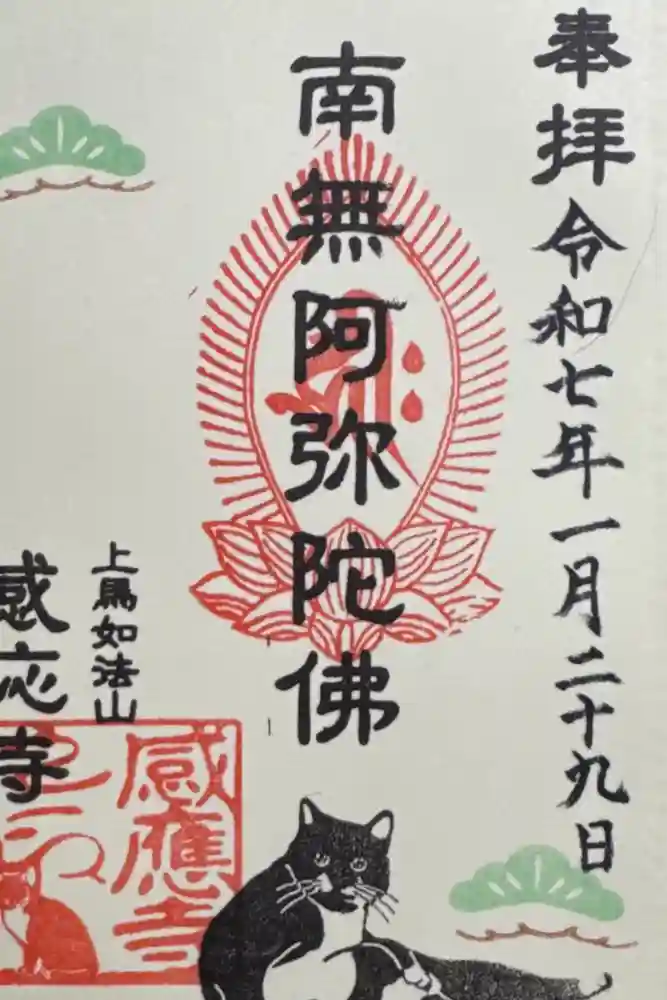 奉拝令和七年一月二十九日
南無阿弥陀佛
上馬如法山
感応寺
感應寺